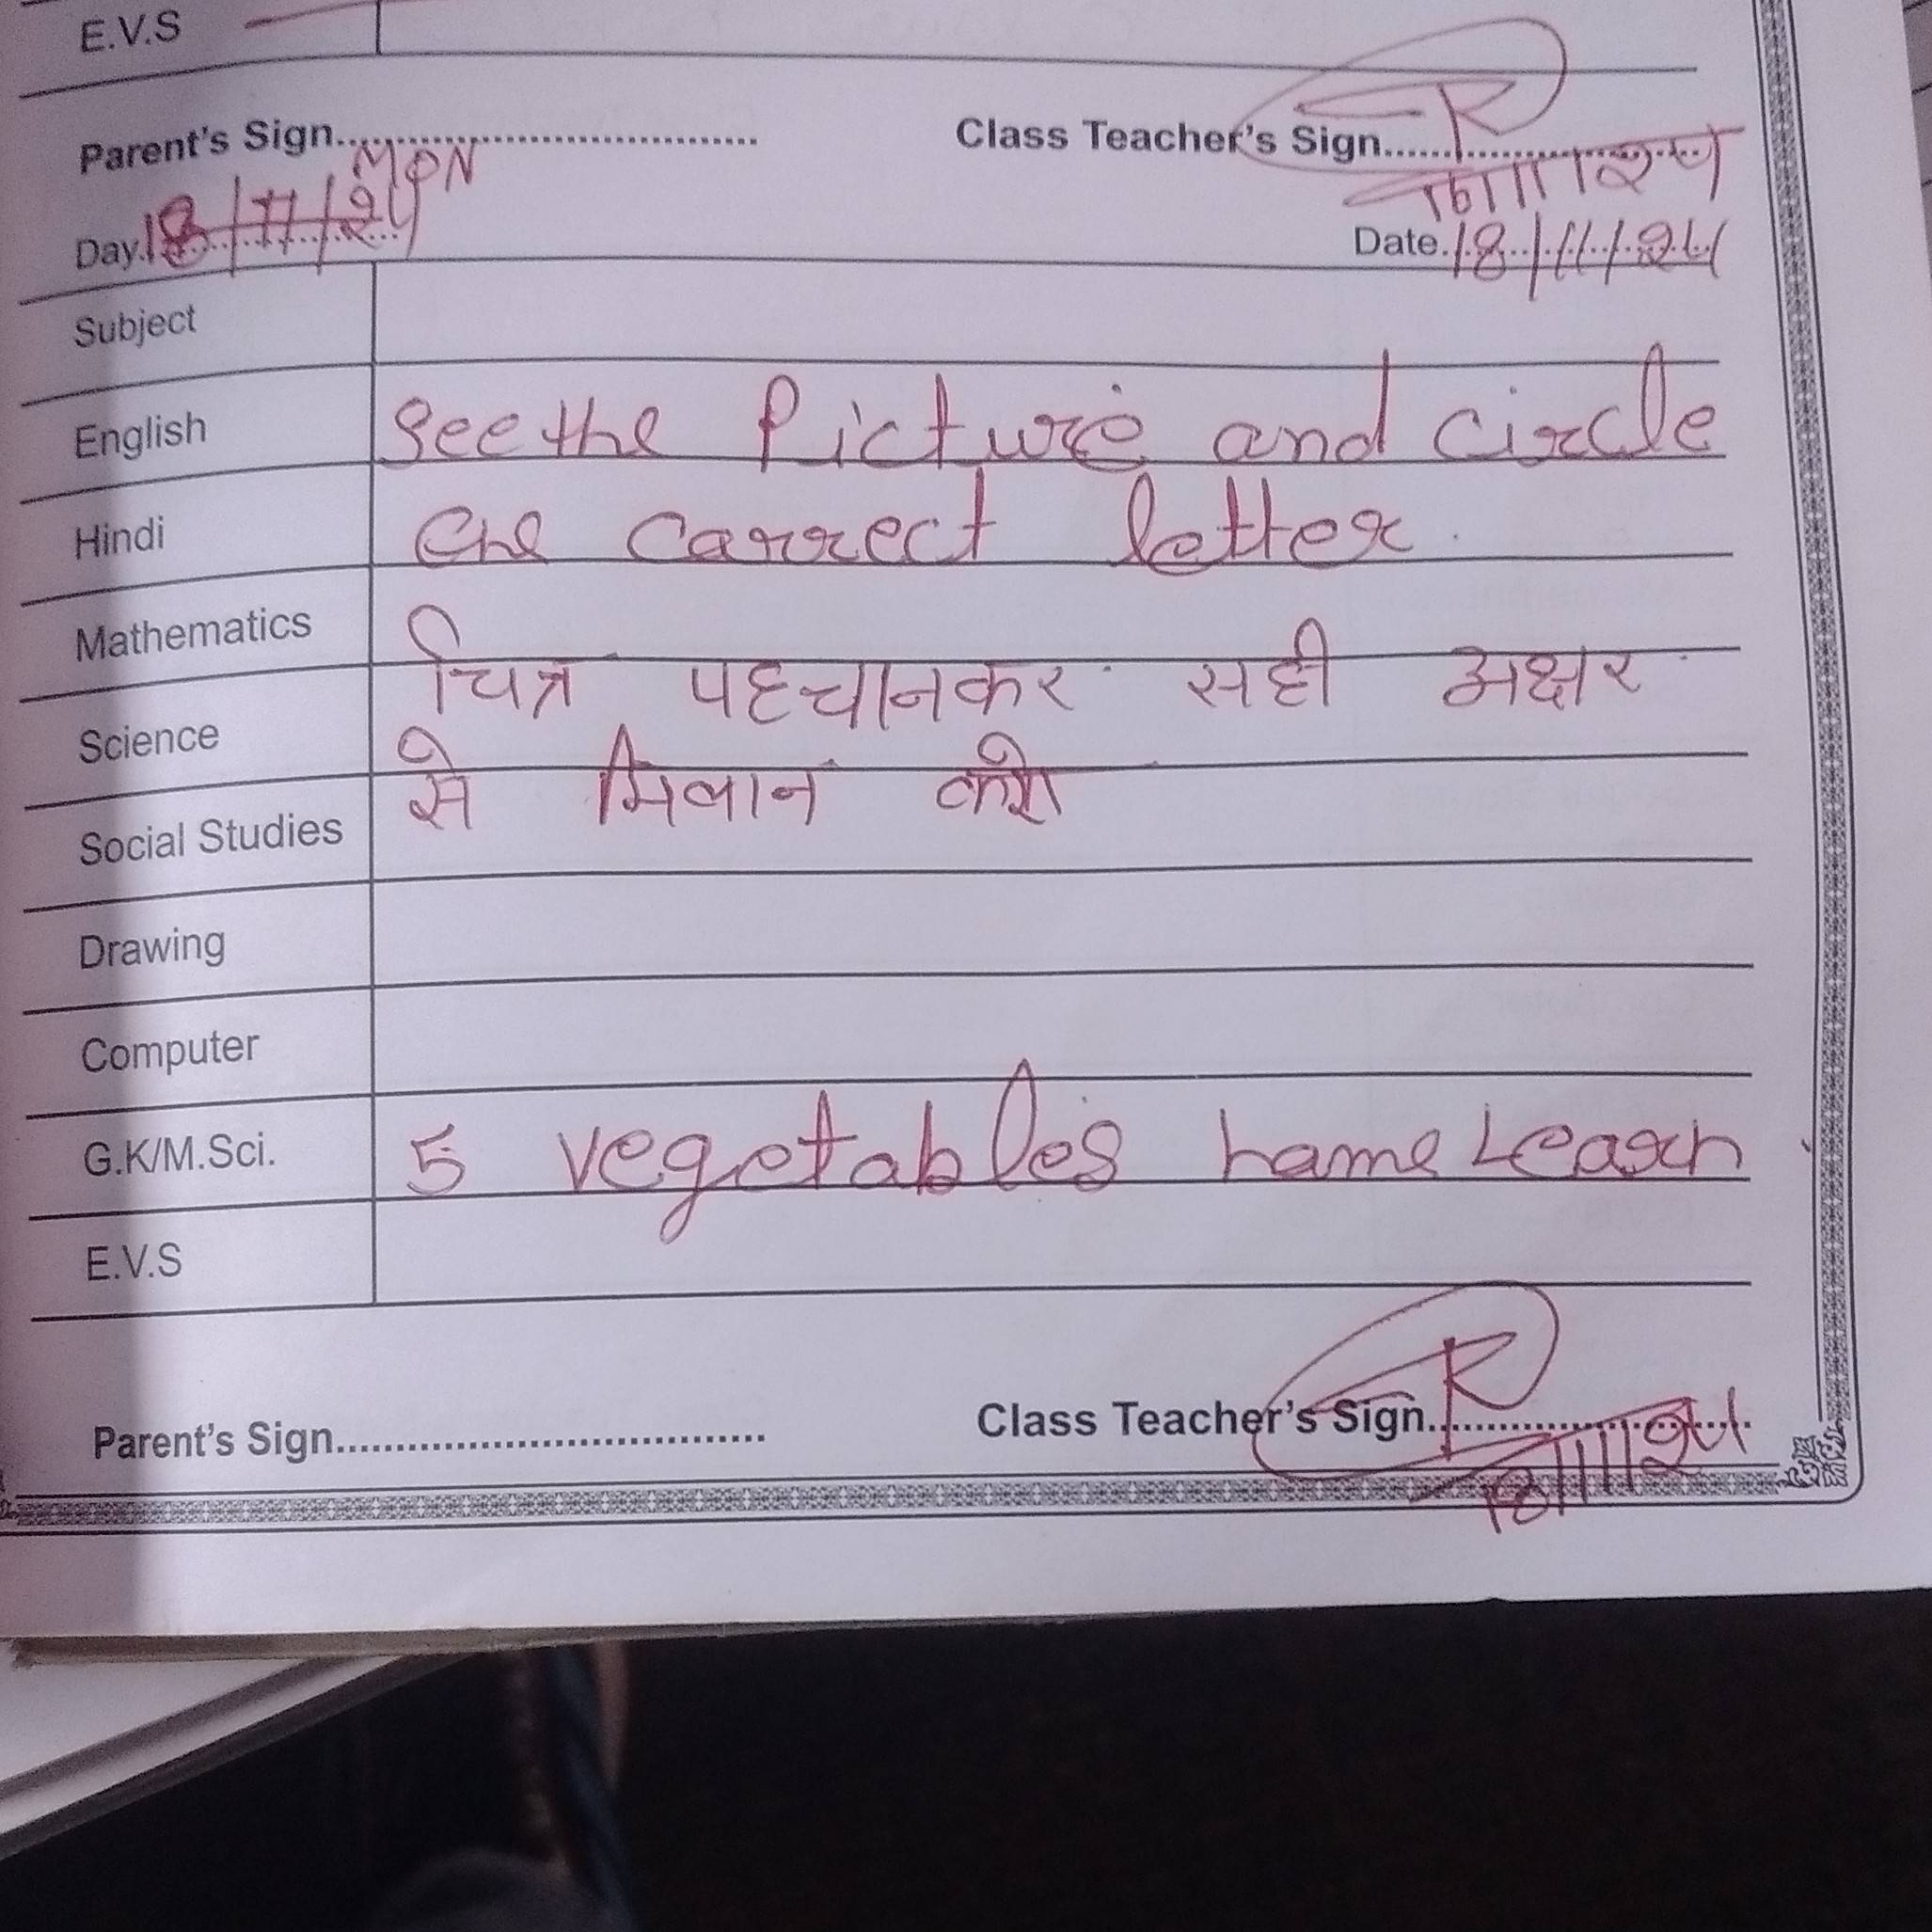 E.V.S
Parent's Sign.................................... Class Teacher's Sign..............................
MON
Day 18/11/24 Date 18/11/24
Subject
English See the Picture and circle
Hindi the carrect letter.
Mathematics
चित्र पहचानकर सही अक्षर
Science
से मिलान करो
Social Studies
Drawing
Computer
G.K/M.Sci. 5 vegetables name Learn
E.V.S
Parent's Sign.................................... Class Teacher's Sign..............................
18/11/24